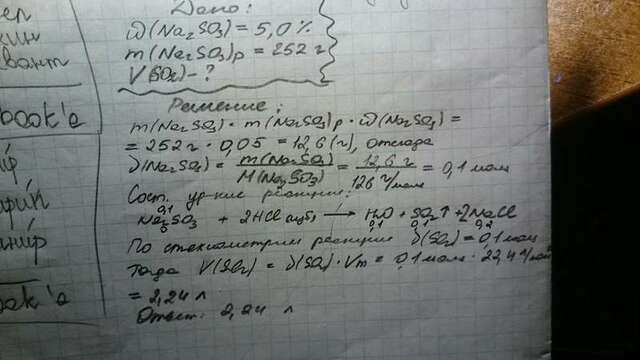 Дано:
ω(Na₂SO₃) = 5,0%
m(Na₂SO₃)р = 252 г
V(SO₂) - ?
Решение:
m(Na₂SO₃) = m(Na₂SO₃)р · ω(Na₂SO₃) =
= 252 г · 0,05 = 12,6 (г), отсюда
ν(Na₂SO₃) = m(Na₂SO₃) / M(Na₂SO₃) = 12,6 г / 126 г/моль = 0,1 моль
Сост. ур-ние реакции:
0,1 0,1 0,1 0,2
Na₂SO₃ + 2HCl → H₂O + SO₂↑ + 2NaCl
По стехиометрии реакции ν(SO₂) = 0,1 моль
Тогда V(SO₂) = ν(SO₂) · Vm = 0,1 моль · 22,4 л/моль
= 2,24 л
Ответ: 2,24 л